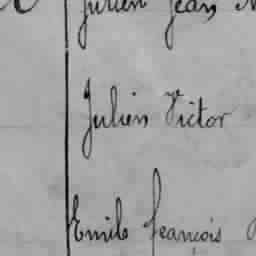 Julien Jean
Julien Victor
Emile François